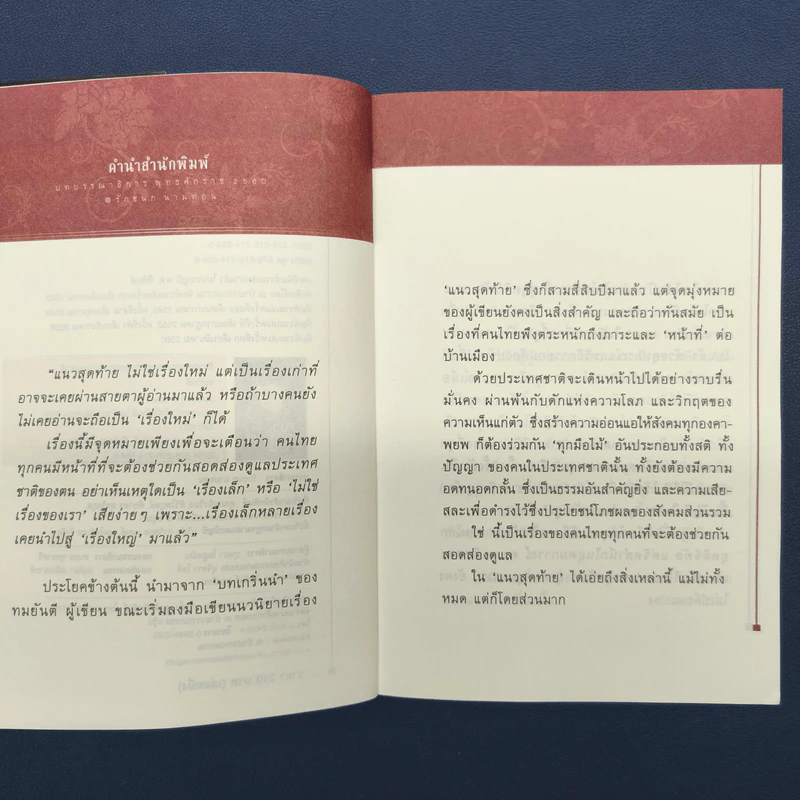 คำนำสำนักพิมพ์
บทบรรณาธิการ พุทธศักราช 2560
รักชนก นามทอน
“แนวสุดท้าย ไม่ใช่เรื่องใหม่ แต่เป็นเรื่องเก่าที่
อาจจะเคยผ่านสายตาผู้อ่านมาแล้ว หรือถ้าบางคนยัง
ไม่เคยอ่านจะถือเป็น ‘เรื่องใหม่’ ก็ได้
เรื่องนี้มีจุดหมายเพียงเพื่อจะเตือนว่า คนไทย
ทุกคนมีหน้าที่ที่จะต้องช่วยกันสอดส่องดูแลประเทศ
ชาติของตน อย่าเห็นเหตุใดเป็น ‘เรื่องเล็ก’ หรือ ‘ไม่ใช่
เรื่องของเรา’ เสียง่ายๆ เพราะ...เรื่องเล็กหลายเรื่อง
เคยนำไปสู่ ‘เรื่องใหญ่’ มาแล้ว”
ประโยคข้างต้นนี้ นำมาจาก ‘บทเกริ่นนำ’ ของ
ทมยันตี ผู้เขียน ขณะเริ่มลงมือเขียนนวนิยายเรื่อง
‘แนวสุดท้าย’ ซึ่งก็สามสี่สิบปีมาแล้ว แต่จุดมุ่งหมาย
ของผู้เขียนยังคงเป็นสิ่งสำคัญ และถือว่าทันสมัย เป็น
เรื่องที่คนไทยพึงตระหนักถึงภาระและ ‘หน้าที่’ ต่อ
บ้านเมือง
ด้วยประเทศชาติจะเดินหน้าไปได้อย่างราบรื่น
มั่นคง ผ่านพ้นกับดักแห่งความโลภ และวิกฤตของ
ความเห็นแก่ตัว ซึ่งสร้างความอ่อนแอให้สังคมทุกองคา-
พยพ ก็ต้องร่วมกัน ‘ทุกมือไม้’ อันประกอบทั้งสติ ทั้ง
ปัญญา ของคนในประเทศชาตินั้น ทั้งยังต้องมีความ
อดทนอดกลั้น ซึ่งเป็นธรรมอันสำคัญยิ่ง และความเสีย-
สละเพื่อดำรงไว้ซึ่งประโยชน์โภชผลของสังคมส่วนรวม
ใช่ นี้เป็นเรื่องของคนไทยทุกคนที่จะต้องช่วยกัน
สอดส่องดูแล
ใน ‘แนวสุดท้าย’ ได้เอ่ยถึงสิ่งเหล่านี้ แม้ไม่ทั้ง
หมด แต่ก็โดยส่วนมาก